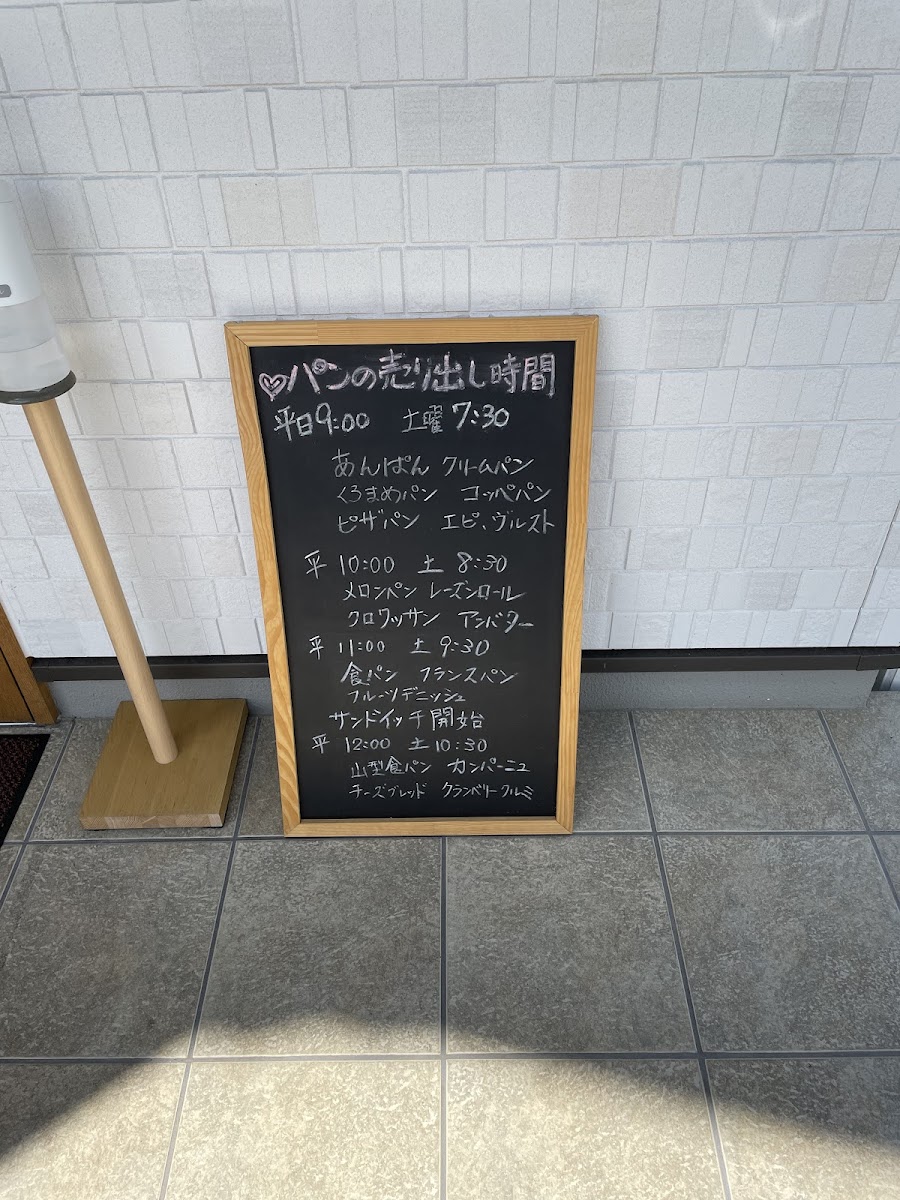 ♡パンの売り出し時間
平日9:00 土曜 7:30
あんぱん クリームパン
くろまめパン コッペパン
ピザパン エピ、ヴルスト
平 10:00 土 8:30
メロンパン レーズンロール
クロワッサン アンバター
平 11:00 土 9:30
食パン フランスパン
フルーツデニッシュ
サンドイッチ開始
平 12:00 土 10:30
山型食パン カンパーニュ
チーズブレッド クランベリークルミ